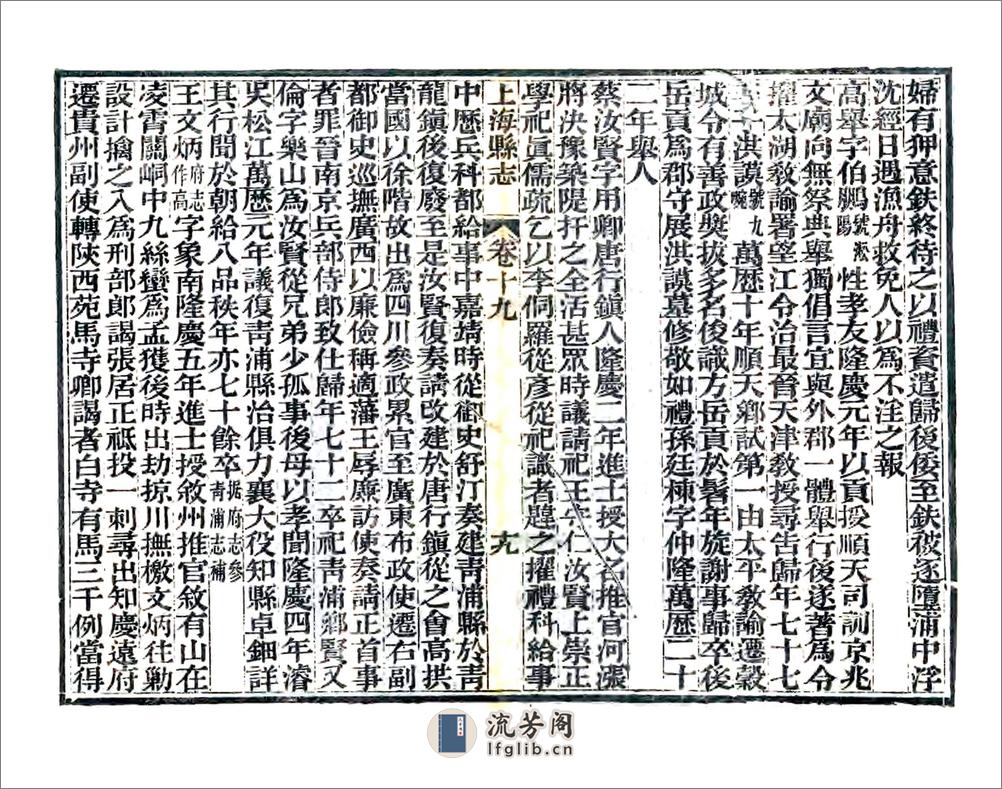 婦有狎意鈇終待之以禮資遣歸後倭至鈇被逐墮浦中浮
沈經日遇漁舟救免人以爲不淫之報
高舉字伯鵬號淞陽性孝友隆慶元年以貢授順天司訓京兆
文廟向無祭典舉獨倡言宜與外郡一體舉行後遂著爲令
擢太湖教諭署望江令治最晉天津教授尋告歸年七十七
卒子洪謨號九畹萬歷十年順天鄉試第一由太平教諭遷穀
城令有善政獎拔多名俊識方岳貢於髫年旋謝事歸卒後
岳貢爲郡守展洪謨墓修敬如禮孫廷棟字仲隆萬歷二十
二年舉人
蔡汝賢字用卿唐行鎮人隆慶二年進士授大名推官河漲
將決豫築隄扞之全活甚眾時議請祀王守仁汝賢上崇正
學祀眞儒疏乞以李侗羅從彥從祀識者韙之擢禮科給事
上海縣志 卷十九 十九
中歷兵科都給事中嘉靖時從御史舒汀奏建青浦縣於青
龍鎮後復廢至是汝賢復奏請改建於唐行鎮從之會高拱
當國以徐階故出爲四川參政累官至廣東布政使遷右副
都御史巡撫廣西以廉儉稱適藩王辱廉訪使奏請正首事
者罪晉南京兵部侍郎致仕歸年七十二卒祀青浦鄉賢又
倫字樂山爲汝賢從兄弟少孤事後母以孝聞隆慶四年濬
吳松江萬歷元年議復青浦縣治俱力襄大役知縣卓鈿詳
其行聞於朝給八品秩年亦七十餘卒據府志參青浦志補
王文炳府志作高字象南隆慶五年進士授敘州推官敘有山在
凌霄關峒中九絲蠻爲孟獲後時出劫掠川撫檄文炳往勦
設計擒之入爲刑部郎謁張居正祗投一刺尋出知慶遠府
遷貴州副使轉陝西苑馬寺卿謁者白寺有馬三千例當得
流芳阁
lfglib.cn